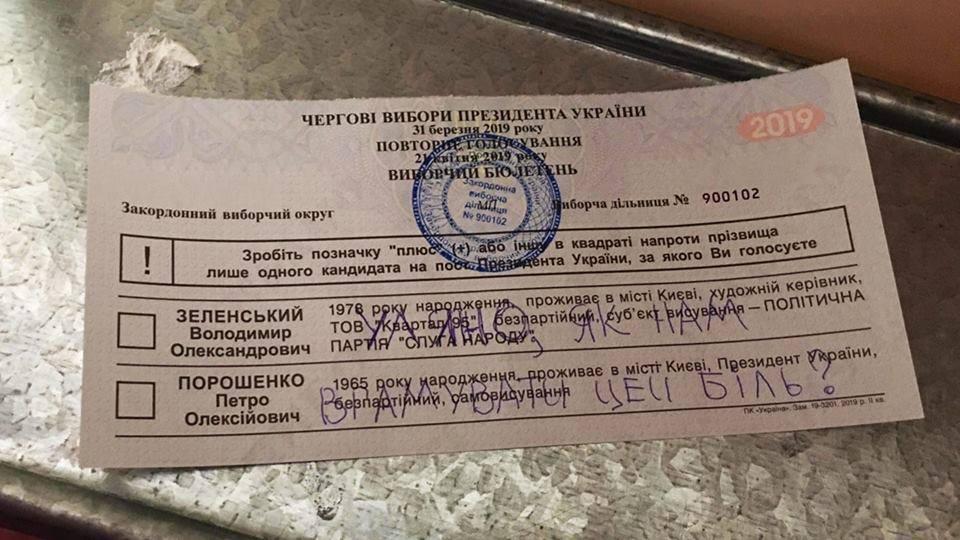 ЧЕРГОВІ ВИБОРИ ПРЕЗИДЕНТА УКРАЇНИ
31 березня 2019 року
2019
ПОВТОРНЕ ГОЛОСУВАННЯ
21 квітня 2019 року
ВИБОРЧИЙ БЮЛЕТЕНЬ
Закордонна
виборча
дільниця
№ 900102
Закордонний виборчий округ
МП
Виборча дільниця № 900102
! Зробіть позначку "плюс" (+) або іншу в квадраті напроти прізвища
лише одного кандидата на пост Президента України, за якого Ви голосуєте
ЗЕЛЕНСЬКИЙ
Володимир
Олександрович
1978 року народження, проживає в місті Києві, художній керівник,
ТОВ "Квартал 95", безпартійний, суб'єкт висування – ПОЛІТИЧНА
ПАРТІЯ "СЛУГА НАРОДУ"
УЛЯНО, ЯК НАМ
ПОРОШЕНКО
Петро
Олексійович
1965 року народження, проживає в місті Києві, Президент України,
безпартійний, самовисування
ВГАМУВАТИ ЦЕЙ БІЛЬ?
ПК «Україна». Зам. 19-3201. 2019 р. II кв.